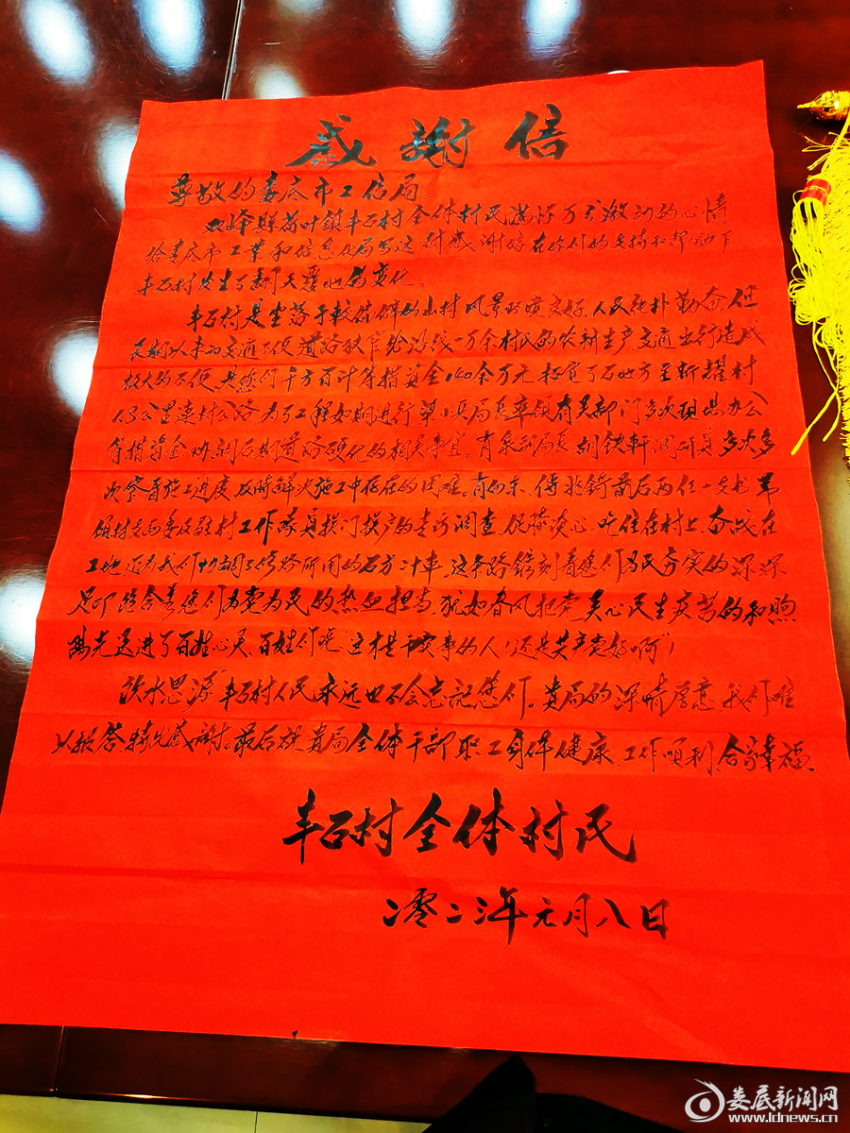 感謝信
尊敬的娄底市工信局
双峰縣荷叶鎮丰石村全体村民满怀万分激动的心情
给娄底市工業和信息化局写这封感謝信在你们的支持和帮助下
丰石村发生了翻天覆地的变化。
丰石村是坐落于較偏僻的山村风景环境良好,人民纯朴勤奋,但
長期以来的交通不便道路狭窄给沿线一万余村民的农耕生产交通出行造成
极大的不便,是您们千方百计筹措資金140余万元拓宽了石地方至新耀村
1.3公里乘村公路 为了工程如期进行 梁小兵局長率領有关部门多次现场办公
筹措資金协調后期道路硬化的相关事宜,有 副局長胡铁軒同 多次
次察看施工進度及時解决施工中存在的困难,肖 、傅 前后两任一支书帶
领村支两委及驻村工作隊員挨门挨户的走访调查 吃住在村上 奋战在
工地还为我们协調了修路所用的石方 这条路镌刻着您们为民务实的深深
足印 饱含着您们为党为民的热血担当 犹如春风把党关心民生疾苦的和煦
陽光送進了百姓心灵,百姓们说“这才是 实事的人!还是共产党好啊”!
“饮水思源”丰石村人民永远也不会忘记您们。貴局的深情厚意我们难
以报答特此感謝。最后祝貴局全体干部職工身体健康 工作順利,合家幸福。
丰石村全体村民
二零二三年元月八日
娄底新闻网
www.ldnews.cn